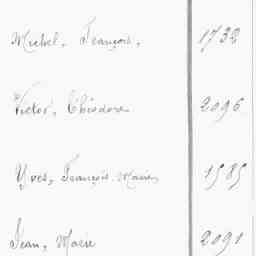 Michel, François, 1732
Victor, Théodore 2096
Yves, François Marie, 1585
Jean, Marie 2091